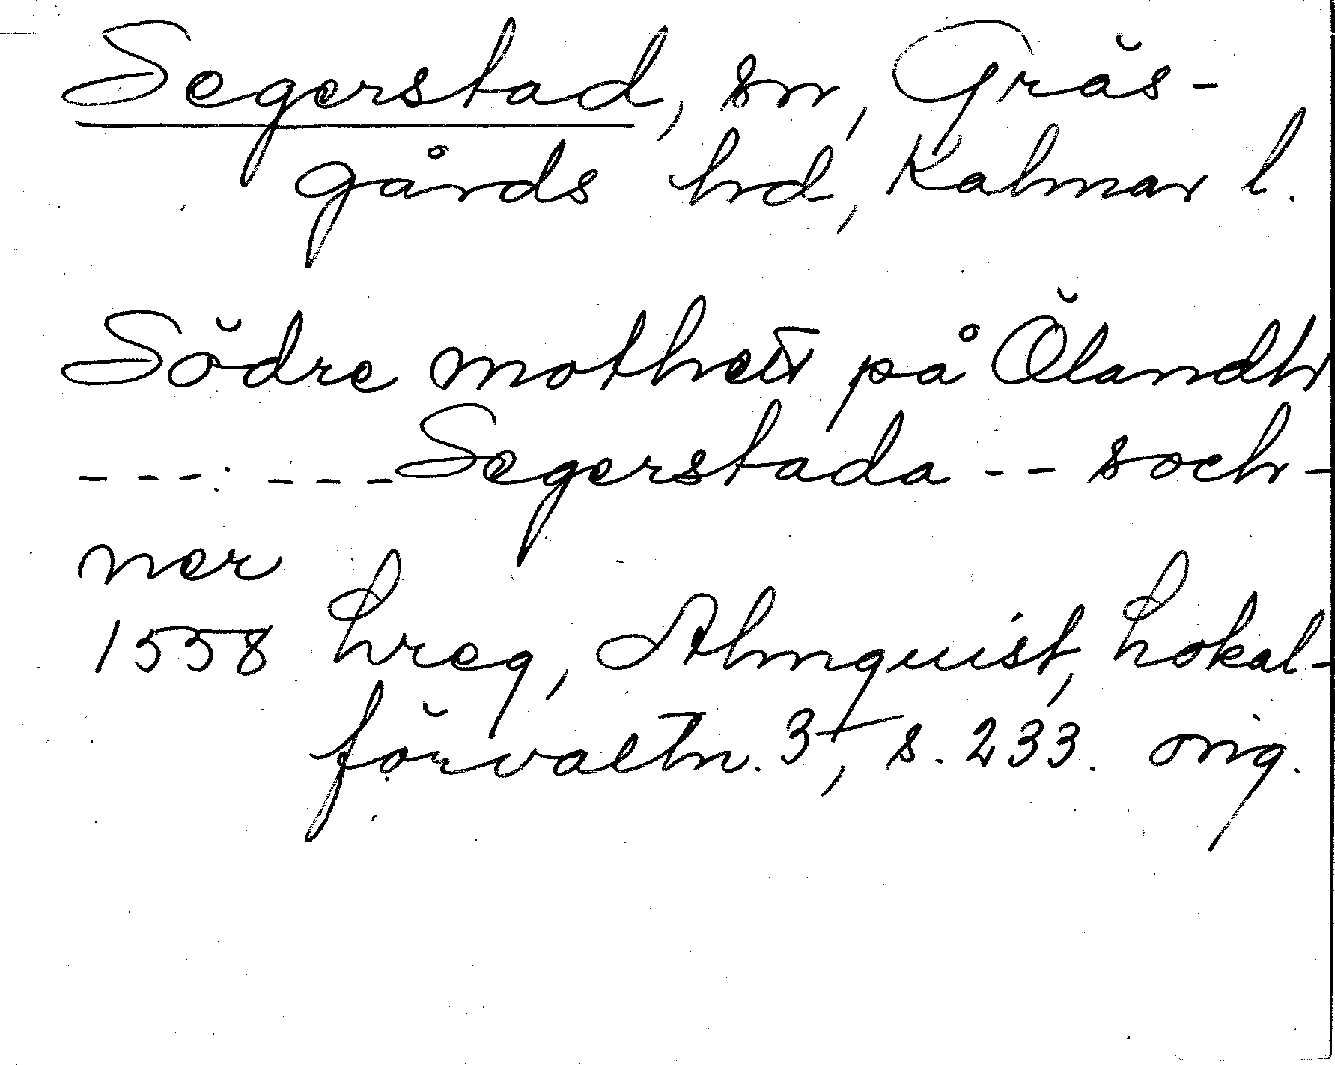 Segerstad, sn, Gräs-
gårds hd, Kalmar l.
Södre mothett på Ölandh
- - - . - - - Segerstada - - soch-
ner
1558 hreg, Almquist, Lokal-
förvaltn. 3, s. 233. orig.